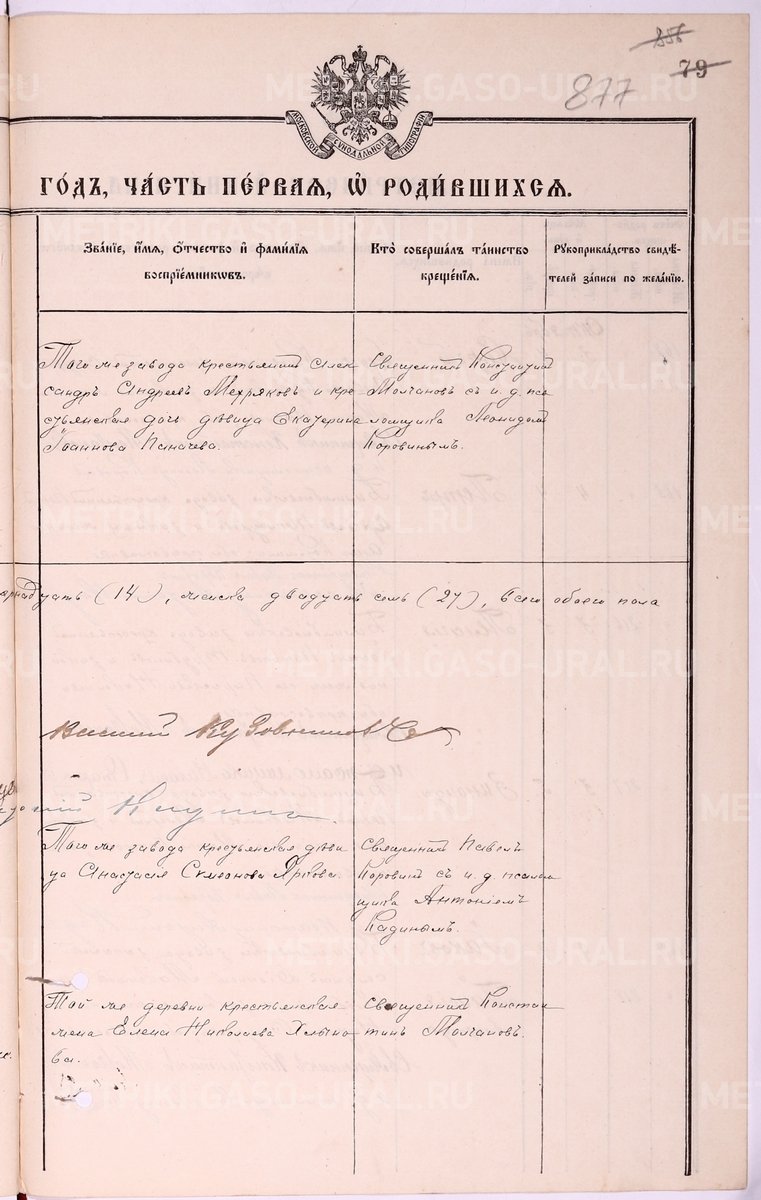 856
79
877
МОСКОВСКОЙ СѴНОДАЛЬНОЙ ТИПОГРАФІИ
ГО́ДЪ, ЧА́СТЬ ПЕ́РВАЯ, Ѽ РОДИ́ВШИХСЯ.
Зва́нїе, и҆́мя, ѻ҆́тчество и҆ фами́лїя
воспрїе́мникѡвъ.
Кто̀ соверша́лъ та́инство
креще́нїя.
Рꙋкоприкла́дство свидѣ́-
телей за́писи по жела́нїю.
Того же завода крестьянинъ Алек
сандръ Андреевъ Мехряковъ и кре
стьянская дочь девица Екатерина
Іоаннова Паначева.
Священникъ
Молчановъ съ и. д. пса
ломщика Леонидомъ
Коровинымъ.
(14), женска двадцать семь (27), всего обоего пола
Того же завода крестьянская деви
ца Анастасія Симеонова Яркова.
Священникъ Павелъ
Коровинъ съ и. д. псалом
щика Антоніемъ
Кадинымъ.
Той же деревни крестьянская
жена Елена Николаева Хлыно
ва.
Священникъ Констан
тинъ Молчановъ.
METRIKI.GASO-URAL.RU